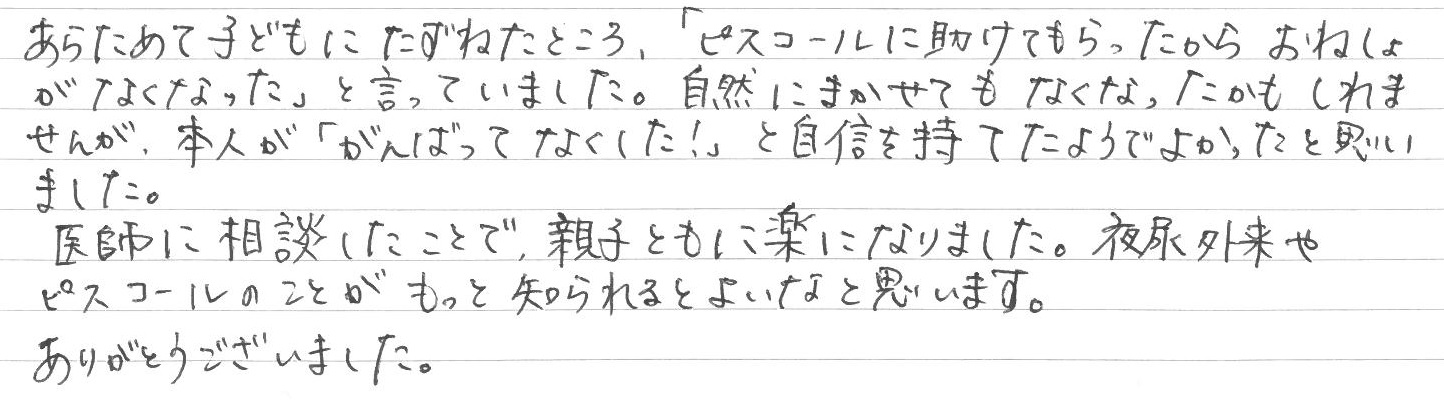 あらためて子どもにたずねたところ、「ピスコールに助けてもらったからおねしょ
がなくなった」と言っていました。自然にまかせてもなくなったかもしれま
せんが、本人が「がんばってなくした!」と自信を持てたようでよかったと思い
ました。
医師に相談したことで、親子ともに楽になりました。夜尿外来や
ピスコールのことがもっと知られるとよいなと思います。
ありがとうございました。